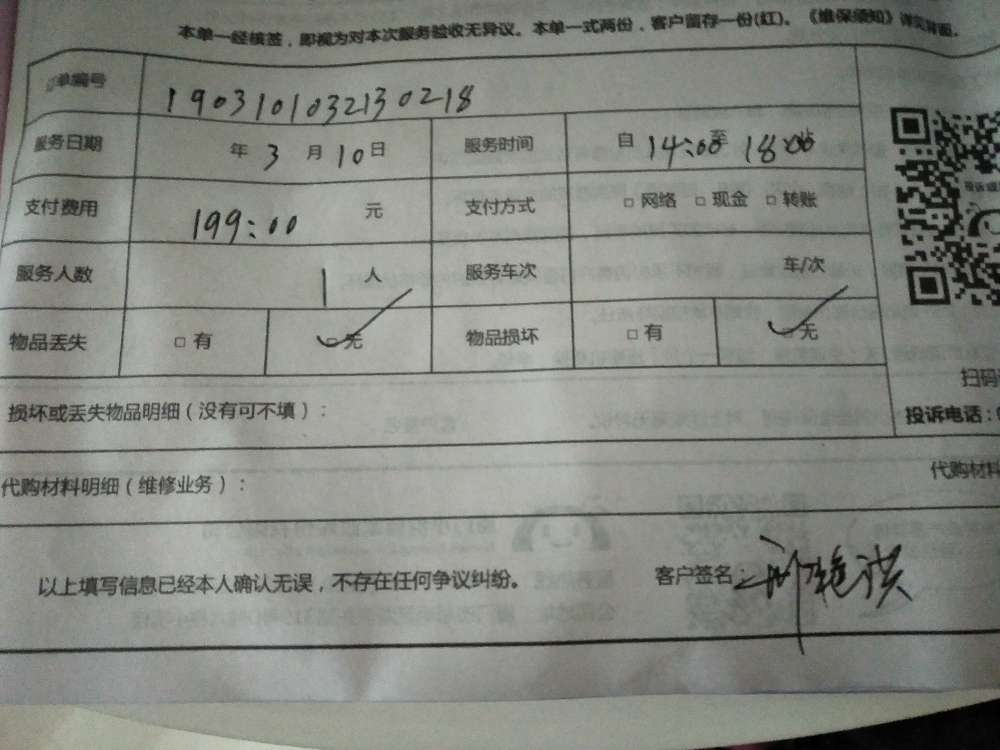 本单一经核签，即视为对本次服务验收无异议。本单一式两份，客户留存一份(红)。《维保须知》详见背面。
单编号 190310103213 0218
服务日期 年 3 月 10 日 服务时间 自 14:00 至 18:00
支付费用 199:00 元 支付方式 □ 网络 □ 现金 □ 转账
服务人数 1 人 服务车次 车/次
物品丢失 □ 有 □ 无 物品损坏 □ 有 □ 无
扫码
损坏或丢失物品明细（没有可不填）：
投诉电话：
代购材料明细（维修业务）： 代购材料
以上填写信息已经本人确认无误，不存在任何争议纠纷。 客户签名：